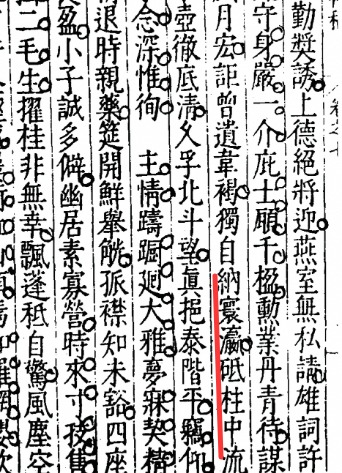 卷之七
勤獎誘上德絕將迎燕室無私請雄詞許
守身嚴一介庇士願千楹勳業丹青待謀
月宏詎曾遺韋褐獨自納寰瀛砥柱中流
壺徹底清久孚北斗望眞挹泰階平仰
念深惟徇 主情躊躕廻大雅夢寐契精
退時親藥筵開鮮舉觥孤襟知未豁四座
盈小子誠多僻幽居素寡營時來寸
二毛生擢桂非無幸飄蓬秪自驚風塵空